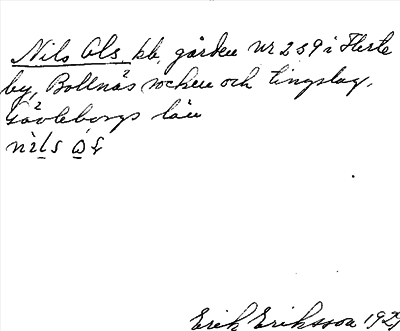 Nils Ols, kb, gården nr 259 i Herte
by, Bollnäs socken och tingslag,
Gävleborgs län
nìls
Erik Eriksson 1929